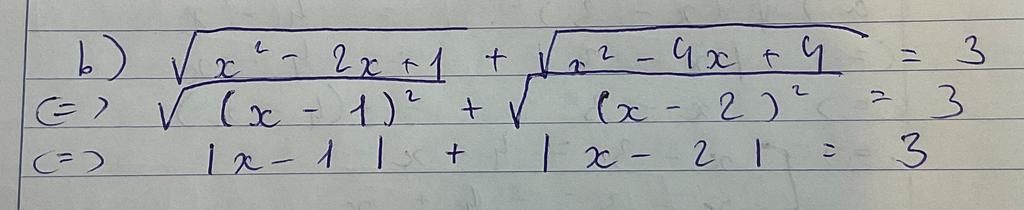 b) √(x² - 2x + 1) + √(x² - 4x + 4) = 3
<=> √((x - 1)²) + √((x - 2)²) = 3
<=> |x - 1| + |x - 2| = 3